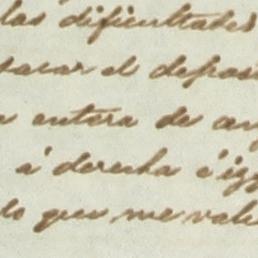 las dificultades
sacar el depos
entera de
á derecha é iz
lo que me val